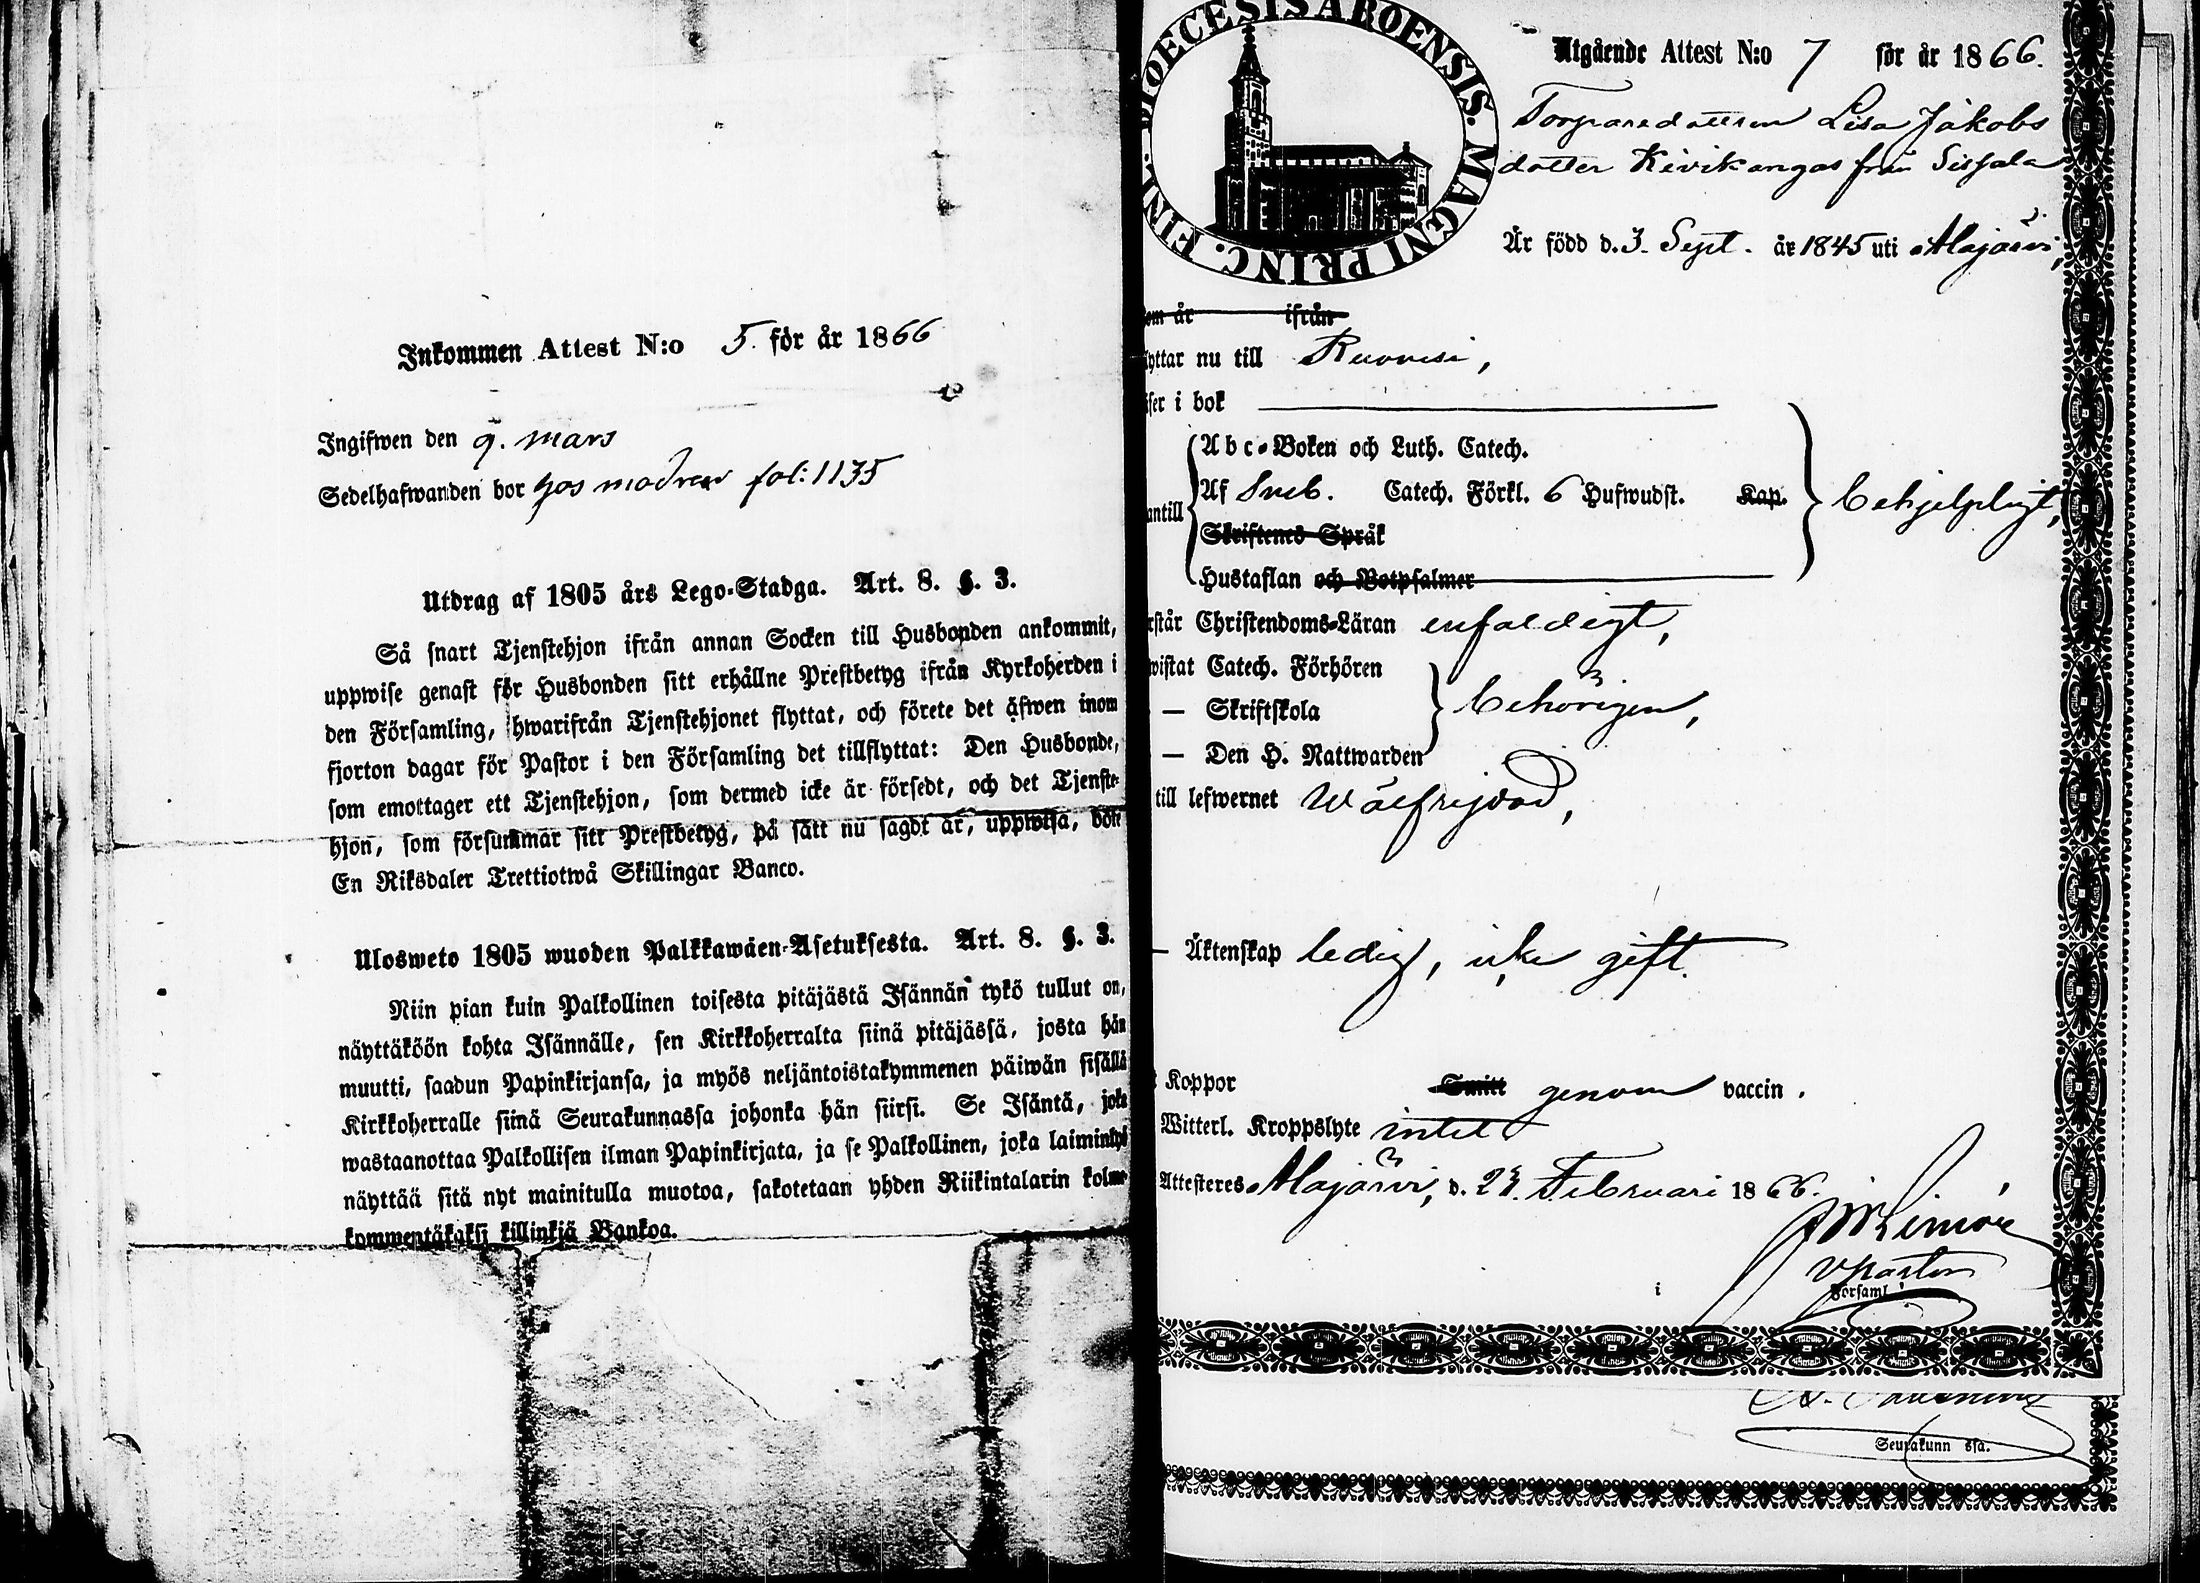 Inkommen Attest N:o 5. för år 1866
Ingifwen den 9. mars
Sedelhafwanden bor hos modren fol: 1135
Utdrag af 1805 års Lego-Stadga. Art. 8. §. 3.
Så snart Tjenstehjon ifrån annan Socken till Husbonden ankommit,
uppwise genast för Husbonden sitt erhållne Prestbetyg ifrån Kyrkoherden i
den Församling, hwarifrån Tjenstehjonet flyttat, och förete det äfwen inom
fjorton dagar för Pastor i den Församling det tillflyttat: Den Husbonde,
som emottager ett Tjenstehjon, som dermed icke är försedt, och det Tjenste-
hjon, som försummar sitt Prestbetyg, på sätt nu sagdt är, uppwisa, böte
En Riksdaler Trettiotwå Skillingar Banco.
Ulosweto 1805 wuoden Palkkawäen-Asetuksesta. Art. 8. §. 3.
Niin pian kuin Palkollinen toisesta pitäjästä Isännän tykö tullut on,
näyttäköön kohta Isännälle, sen Kirkkoherralta siinä pitäjässä, josta hän
muutti, saadun Papinkirjansa, ja myös neljäntoistakymmenen päiwän sisällä
Kirkkoherralle siinä Seurakunnassa johonka hän siirsi. Se Isäntä, joka
wastaanottaa Palkollisen ilman Papinkirjata, ja se Palkollinen, joka laiminlyö
näyttää sitä nyt mainitulla muotoa, sakotetaan yhden Riikintalarin kolme-
kymmentäkaksi killinkiä Bankoa.
DIOECESIS ABOENSIS. MAGNI PRINC. FINL.
Utgående Attest N:o 7 för år 1866.
Torparedottren Lisa Jakobs
dotter Kivikangas från
Är född d. 3. Sept. år 1845 uti Alajärvi,
om år ifrån
yttar nu till Ruovesi,
äser i bok
Abc-Boken och Luth. Catech.
antill Af Sveb. Catech. Förkl. 6 Hufwudst. Kap. behjelpligt,
Skriftenes Språk
Hustaflan och Botpsalmer
rstår Christendoms-Läran enfaldigt,
wistat Catech. Förhören
— Skriftskola behörigen,
— Den H. Nattwarden
till lefwernet wälfrejdad,
— Äktenskap ledig, icke gift.
Koppor Smitt genom vaccin.
Witterl. Kroppslyte intet
Attesteres Alajärvi, d. 23. Februari 1866.
vpastor
i Församl.
Seurakunn ssa.